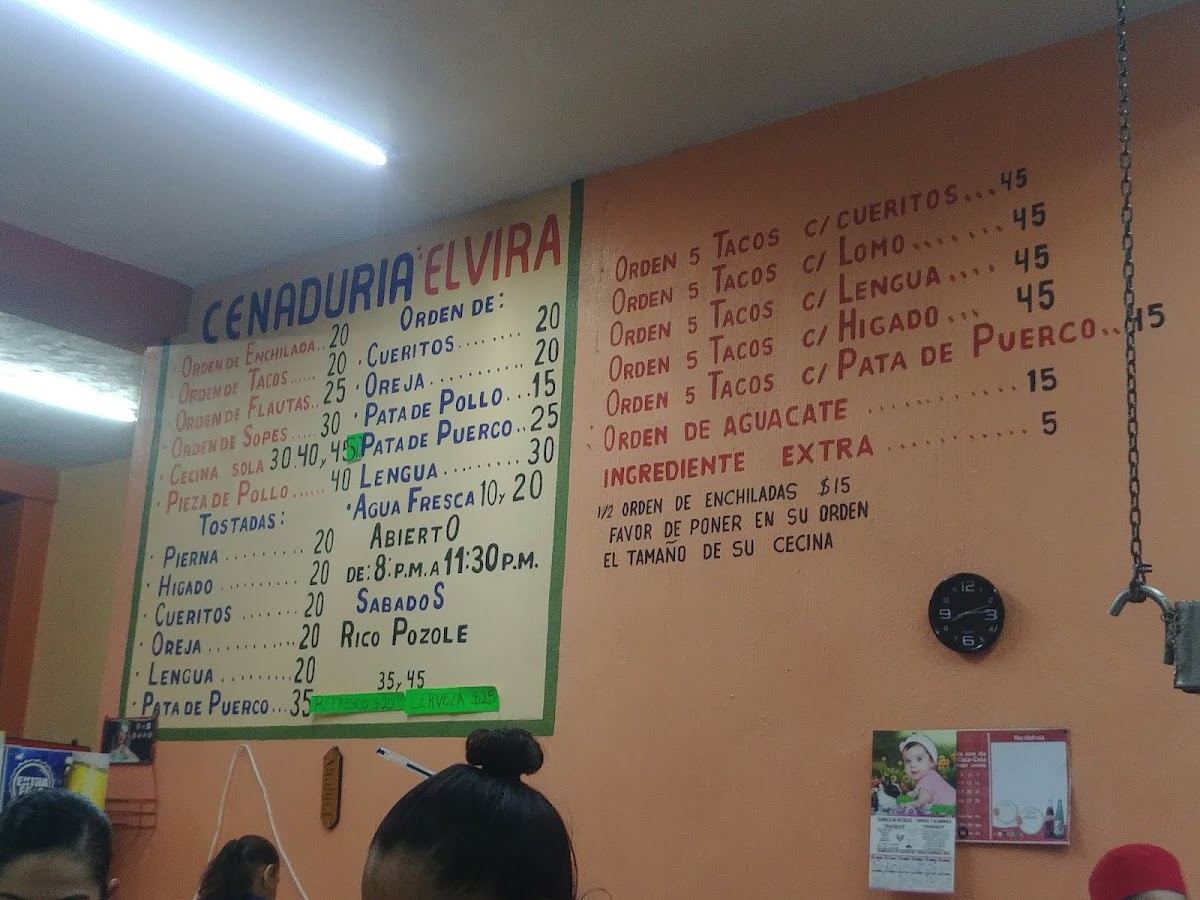 CENADURIA "ELVIRA
ORDEN DE ENCHILADA.. 20
ORDEN DE TACOS...... 20
ORDEN DE FLAUTAS.. 25
ORDEN DE SOPES..... 30
CECINA SOLA 30,40,45
PIEZA DE POLLO...... 40
TOSTADAS:
PIERNA ......... 20
HIGADO ......... 20
CUERITOS ....... 20
OREJA .......... 20
LENGUA ......... 20
PATA DE PUERCO... 35
ORDEN DE:
CUERITOS........ 20
OREJA .......... 20
PATA DE POLLO...15
PATA DE PUERCO..25
LENGUA ........ 30
AGUA FRESCA 10, 20
ABIERTO
DE: 8: P.M. A 11:30 P.M.
SABADOS
RICO POZOLE
35, 45
REFRESCO $20
CERVEZA $25
ORDEN 5 TACOS C/CUERITOS...45
ORDEN 5 TACOS C/ LOMO....... 45
ORDEN 5 TACOS C/ LENGUA.... 45
ORDEN 5 TACOS C/ HIGADO... 45
ORDEN 5 TACOS C/ PATA DE PUERCO..45
ORDEN DE AGUACATE ........... 15
INGREDIENTE EXTRA ........... 5
1/2 ORDEN DE ENCHILADAS $15
FAVOR DE PONER EN SU ORDEN
EL TAMAÑO DE SU CECINA
12
9 3
6
Hoy disfruta
Coca-Cola